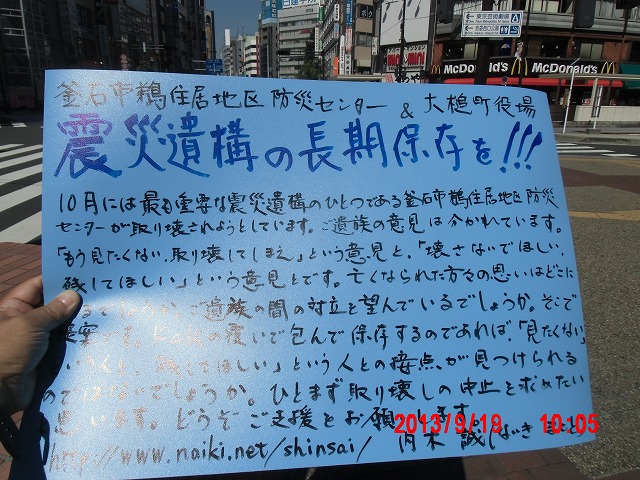 東京芸術劇場
McDonald's
McDonald's
釜石市鵜住居地区防災センター & 大槌町役場
震災遺構の長期保存を!!!
10月には最も重要な震災遺構のひとつである釜石市鵜住居地区防災
センターが取り壊されようとしています。ご遺族の意見は分かれています。
「もう見たくない、取り壊してしまえ」という意見と、「壊さないでほしい、
残してほしい」という意見とです。亡くなられた方々の思いはどこに
ご遺族の間の対立を望んでいるでしょうか。そこで
の覆いで包んで保存するのであれば、「見たくない」
してほしい」という人との接点が見つけられる
のではないでしょうか。ひとまず取り壊しの中止を求めたい
思います。どうぞご支援をお願いします。
http://www.naiki.net/shinsai/ 内木 誠 (ないき まこと)
2013/9/19 10:05